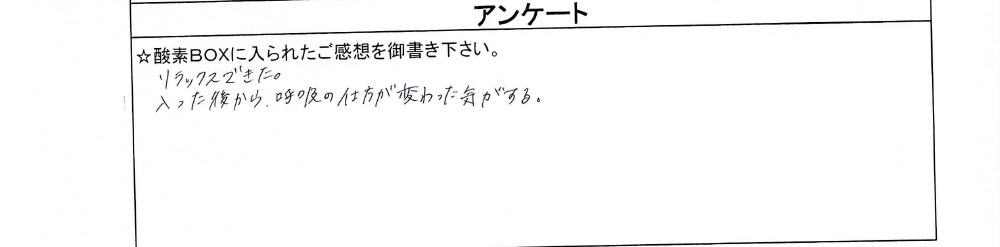 アンケート
☆酸素BOXに入られたご感想を御書き下さい。
リラックスできた。
入った後から、呼吸の仕方が変わった気がする。